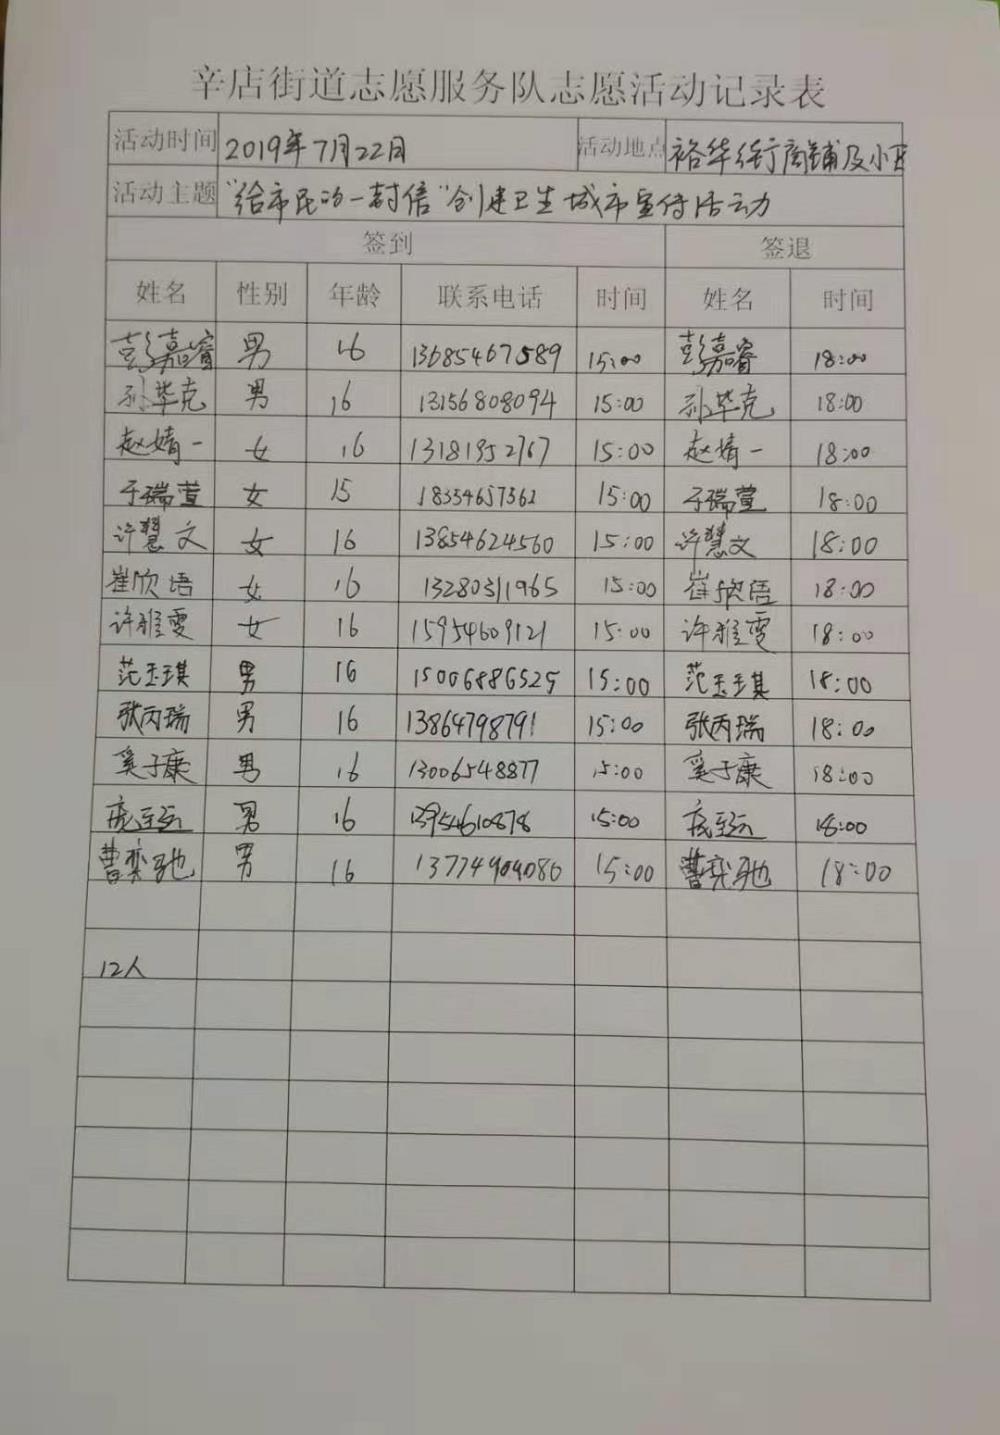 辛店街道志愿服务队志愿活动记录表
活动时间 2019年7月22日 活动地点 裕华街商铺及小区
活动主题 "给市民的一封信"创建卫生城市宣传活动
签到 签退
姓名 性别 年龄 联系电话 时间 姓名 时间
彭嘉睿 男 16 13685467589 15:00 彭嘉睿 18:00
孙毕克 男 16 13156808094 15:00 孙毕克 18:00
赵婧一 女 16 13181952767 15:00 赵婧一 18:00
于瑞萱 女 15 18354657362 15:00 于瑞萱 18:00
许慧文 女 16 13854624560 15:00 许慧文 18:00
崔欣语 女 16 13280311965 15:00 崔欣语 18:00
许雅雯 女 16 15954609121 15:00 许雅雯 18:00
范玉琪 男 16 15006886525 15:00 范玉琪 18:00
张丙瑞 男 16 13864798791 15:00 张丙瑞 18:00
奚子康 男 16 13006548877 15:00 奚子康 18:00
男 16 13954610878 15:00 18:00
曹奕驰 男 16 15:00 曹奕驰 18:00
12人